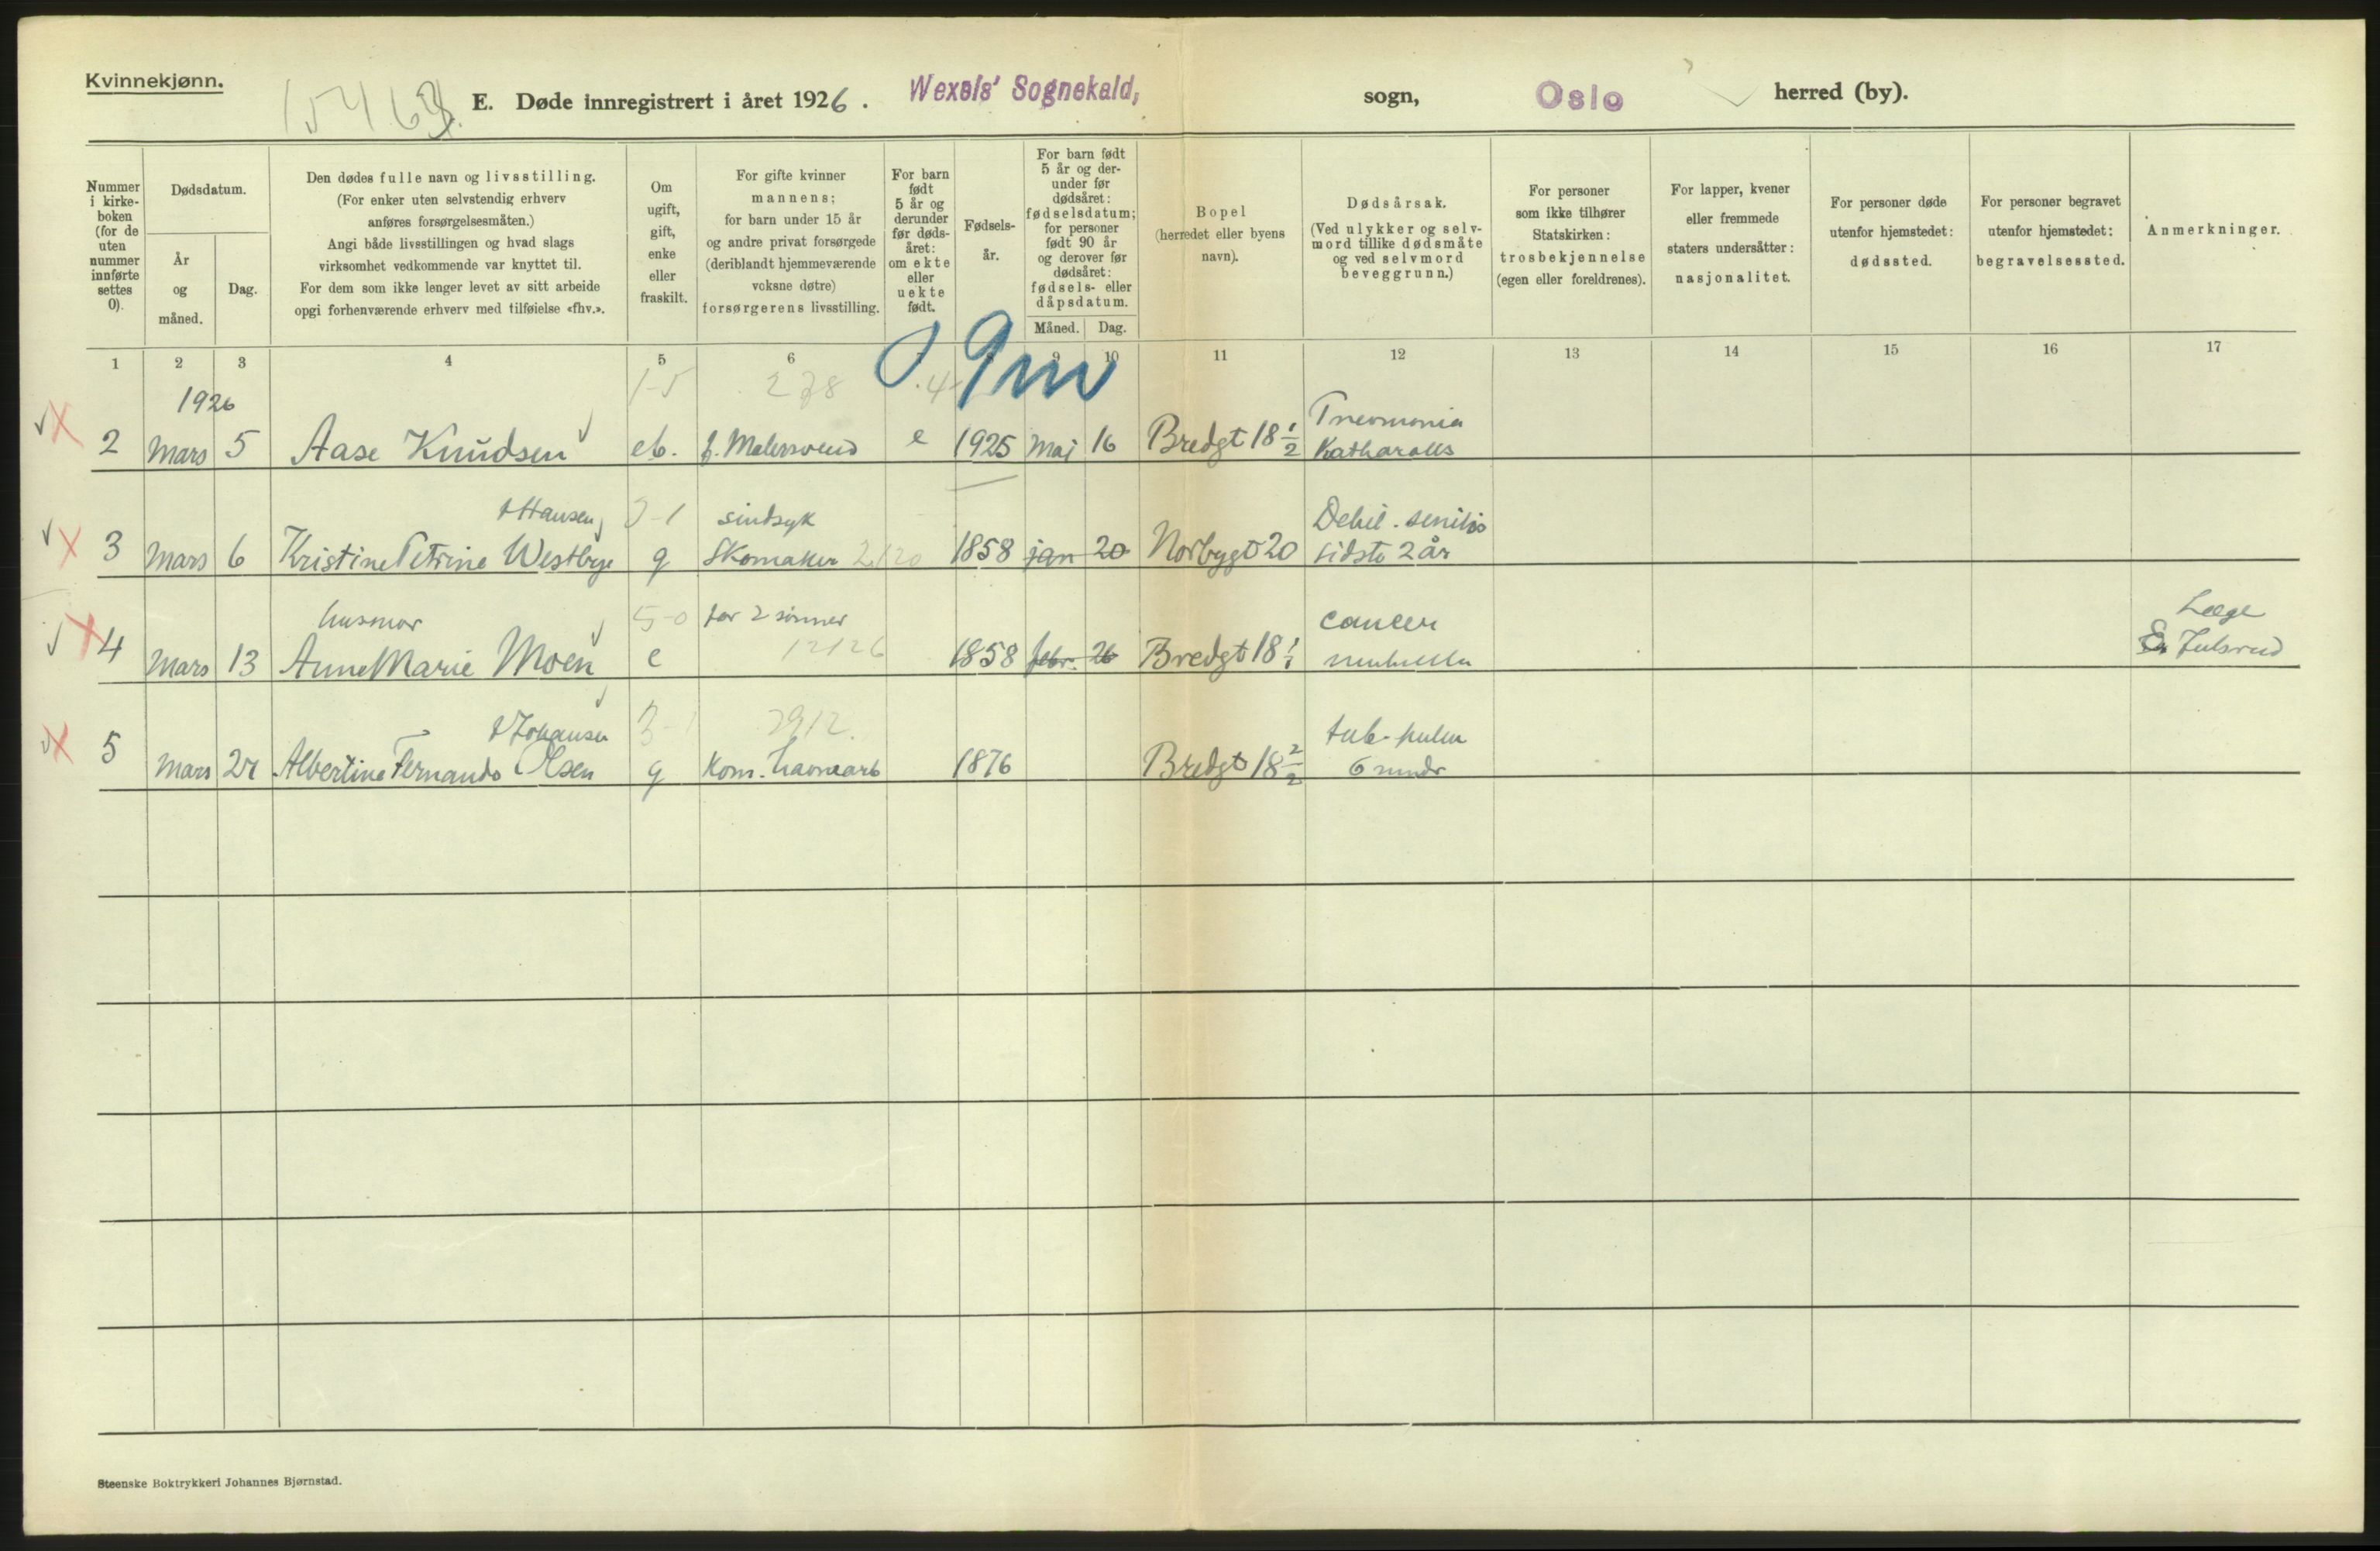 Kvinnekjønn.
E. Døde innregistrert i året 1926. Wexels' Sognekald, sogn, Oslo herred (by).
Nummer i kirkeboken (for de uten nummer innførte settes 0).
Dødsdatum.
År og måned.
Dag.
Den dødes fulle navn og livsstilling.
(For enker uten selvstendig erhverv
anføres forsørgelsesmåten.)
Angi både livsstillingen og hvad slags
virksomhet vedkommende var knyttet til.
For dem som ikke lenger levet av sitt arbeide
opgi forhenværende erhverv med tilføielse «fhv.».
Om
ugift,
gift,
enke
eller
fraskilt.
For gifte kvinner
mannens;
for barn under 15 år
og andre privat forsørgede
(deriblandt hjemmeværende
voksne døtre)
forsørgerens livsstilling.
For barn
født
5 år og
derunder
før døds-
året:
om ekte
eller
uekte
født.
Fødsels-
år.
For barn født
5 år og der-
under før
dødsåret:
fødselsdatum;
for personer
født 90 år
og derover før
dødsåret:
fødsels- eller
dåpsdatum.
Måned. Dag.
Bopel
(herredet eller byens
navn).
Dødsårsak.
(Ved ulykker og selv-
mord tillike dødsmåte
og ved selvmord
beveggrunn.)
For personer
som ikke tilhører
Statskirken:
trosbekjennelse
(egen eller foreldrenes).
For lapper, kvener
eller fremmede
staters undersåtter:
nasjonalitet.
For personer døde
utenfor hjemstedet:
dødssted.
For personer begravet
utenfor hjemstedet:
begravelsessted.
Anmerkninger.
1 2 3 4 5 6 8 9 10 11 12 13 14 15 16 17
1926 1-5 278 4 9m
Pneumonia
2 Mars 5 Aase Knudsen eb. f. Malersvend e 1925 Mai 16 Bredgt 18 1/2 Katharalis
Hansen 3-1 sindsyk Debil. senilis
3 Mars 6 Kristine Petrine Westbye g Skomaker 2120 1858 jan 20 Norbygt 20 sidste 2 år
husmor 5-0 for 2 sønner 12126 cancer Læge
4 Mars 13 Anne Marie Moen e 1858 febr. 26 Bredgt 18 Julsrud
Johansen 3-1 2912. tub. pulm
5 Mars Albertine Fernanda Olsen g Kom. havnearb 1876 Bredgt 18 2/2 6 mndr
Steenske Boktrykkeri Johannes Bjørnstad.